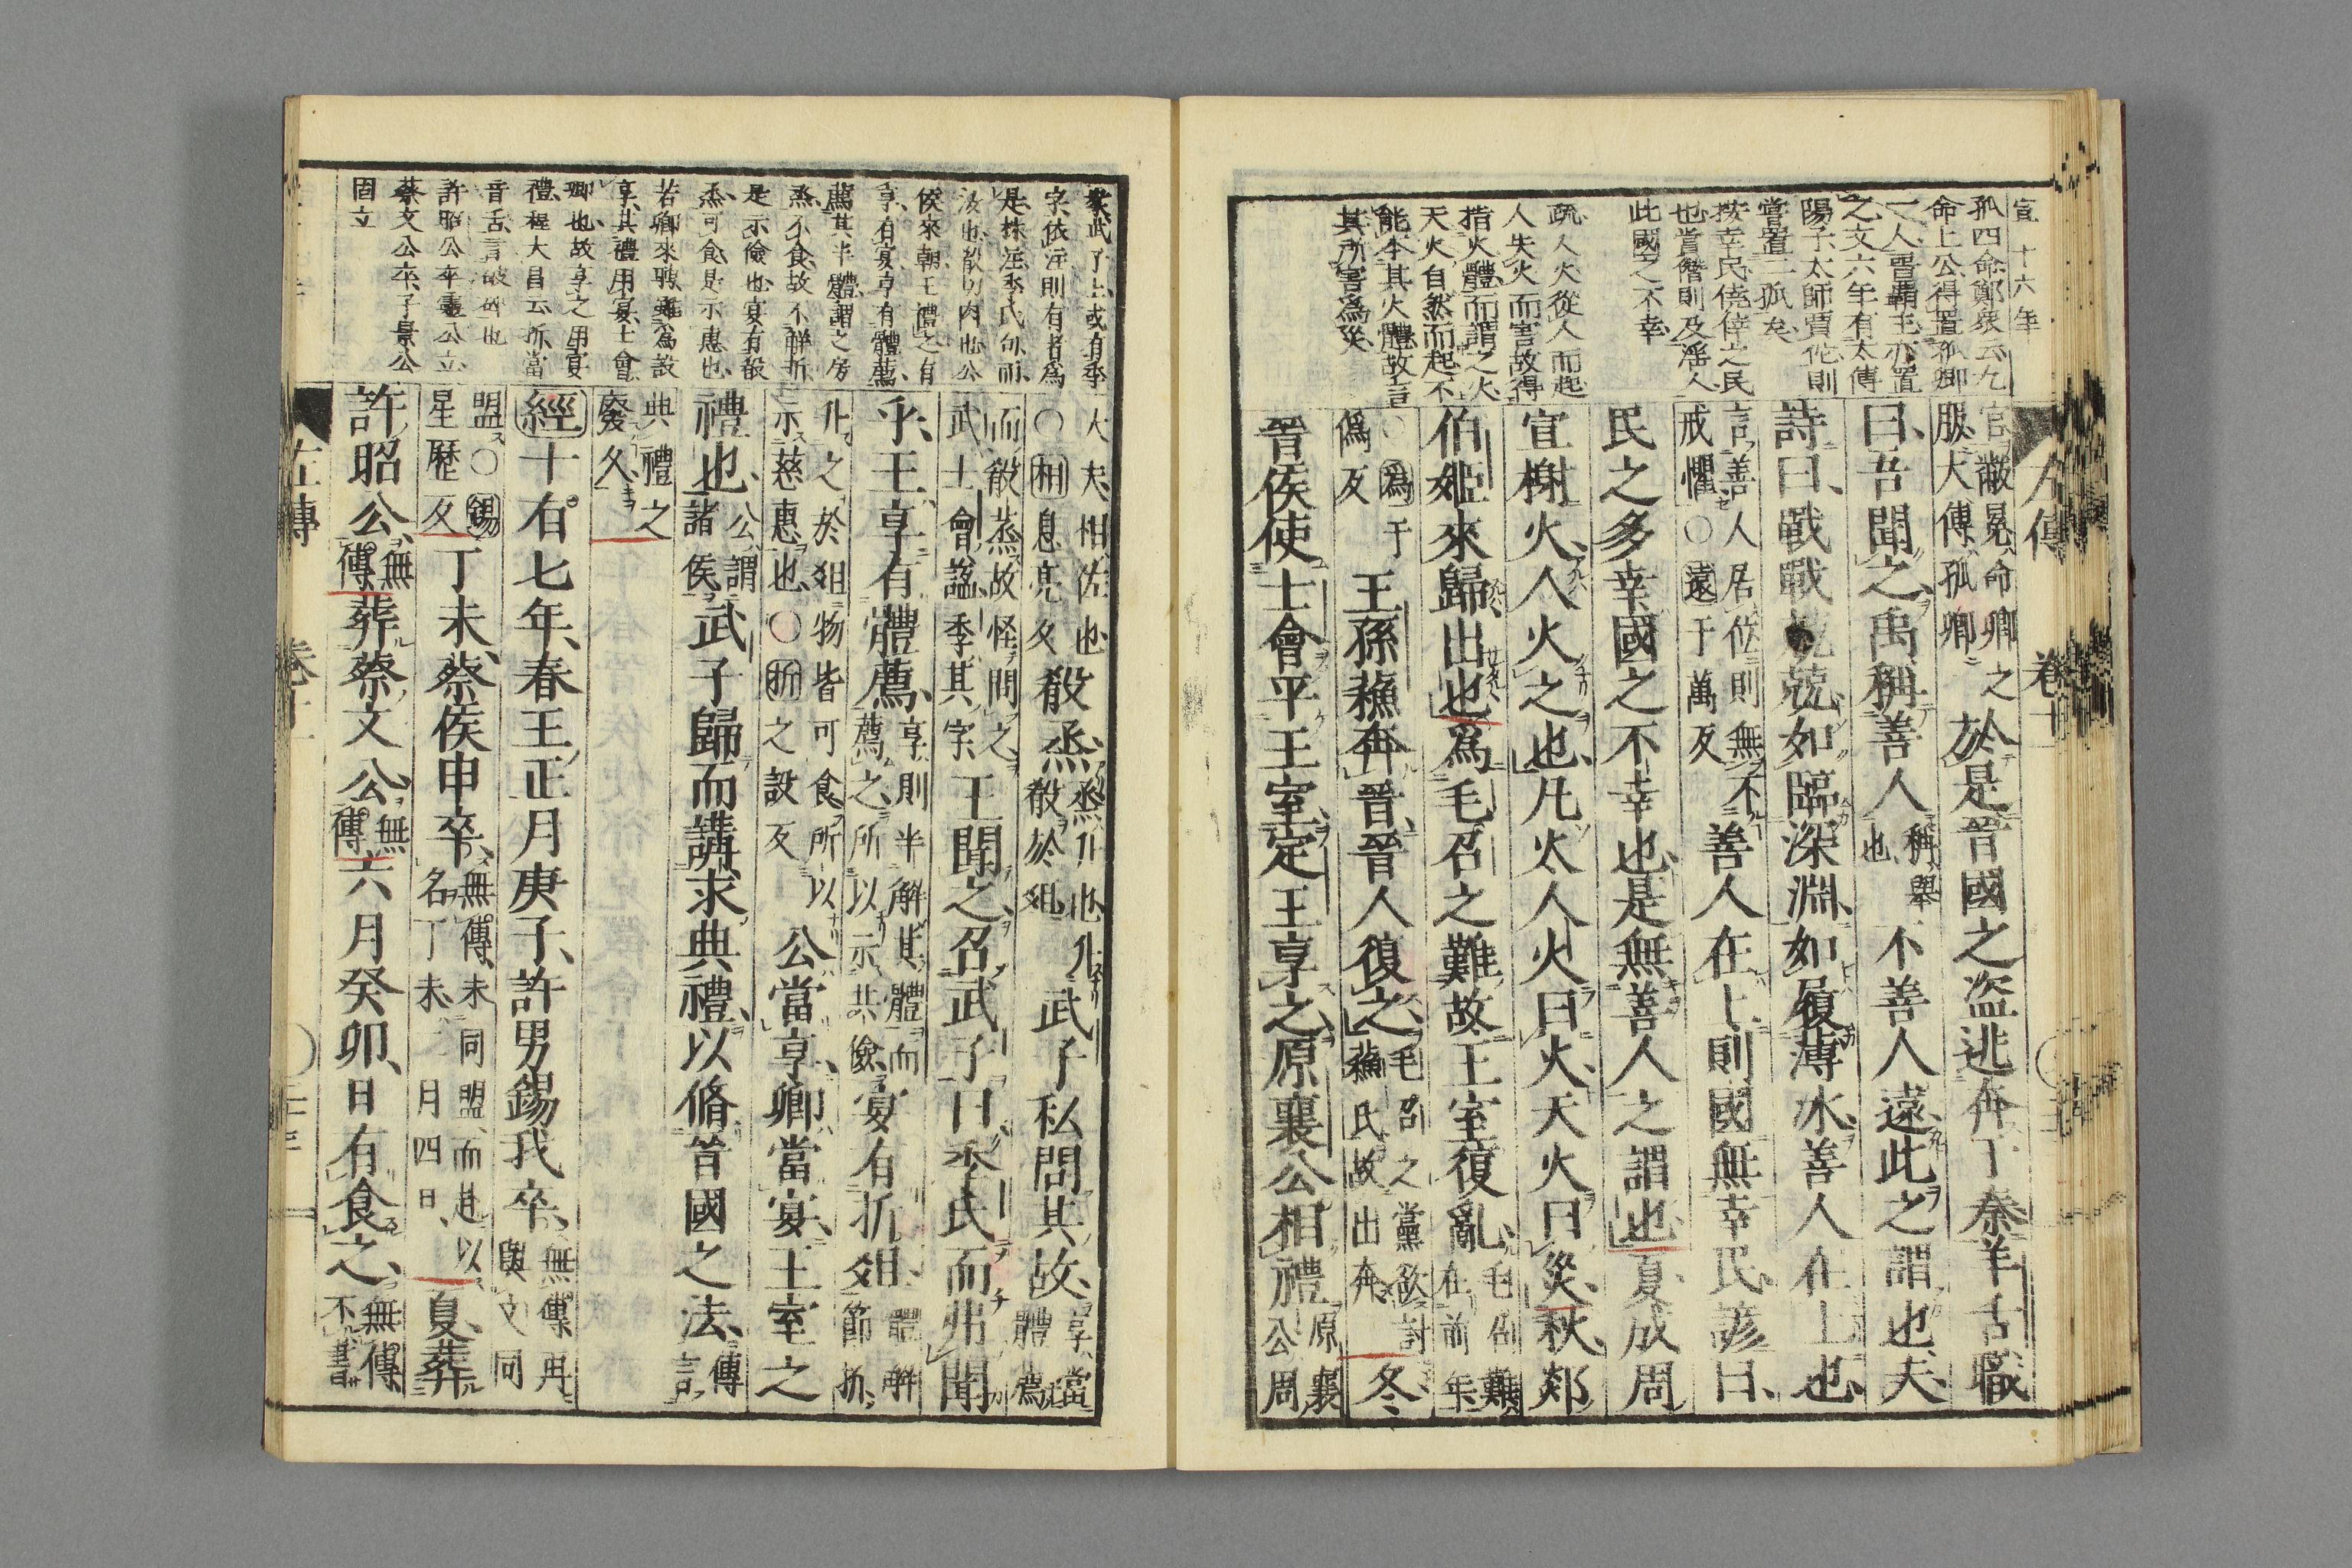 宣十六年
孤四命鄭衆云九
命上公得置孤卿
一人晋霸王亦置
之文六年有太傅
陽子太師賈佗則
嘗置二孤矣
按幸民僥倖之民
也賞僭則及淫人
此國之不幸
疏人火從人而起
人失火而害故得
指火體而謂之火
天火自然而起不
能本其火體故言
其所害爲災
左傳 卷十
官黻冕命卿之
服大傅孤卿
於是晉國之盜逃奔于秦羊舌職
曰吾聞之禹稱善人
稱舉
也
不善人遠此之謂也夫
詩曰戰戰兢兢如臨深淵如履薄冰善人在上也
言善人居位則無不
戒懼○遠于萬反
善人在上則國無幸民諺曰
民之多幸國之不幸也是無善人之謂也夏成周
宣榭火人火之也凡火人火曰火天火曰災秋郯
伯姬來歸出也爲毛召之難故王室復亂
毛召難
在前年
○爲于
僞反
王孫蘇奔晉晉人復之
毛召之黨欲討
蘇氏故出奔
冬
晉侯使士會平王室定王享之原襄公相禮
原襄
公周
大夫相佐也
○相息亮反
殽烝
烝升也升
殽於俎
武子私問其故
享當
體薦
而殽烝故怪問之
武士會謚季其字
王聞之召武子曰季氏而弗聞
乎王享有體薦
享則半解其體而
薦之所以示共儉
宴有折俎
體解
節折
升之於俎物皆可食所以
示慈惠也○折之設反
公當享卿當宴王室之
禮也
公謂
諸侯
武子歸而講求典禮以脩晉國之法
傳
言
典禮之
廢久
經十有七年春王正月庚子許男錫我卒
無傳再
與文同
盟○錫
星歷反
丁未蔡侯申卒
無傳未同盟而赴以
名丁未二月四日
夏葬
許昭公
無
傳
葬蔡文公
無
傳
六月癸卯日有食之
無傳
不書
左傳
字依注則有者爲
是抹注季氏句而
汝也殽切肉也公
侯來朝王禮之有
享有宴享有體薦
薦其半體謂之房
烝不食故不解折
是示儉也宴有殽
烝可食是示惠也
若卿來聘雖爲設
享其禮用宴士會
卿也故享之用宴
禮桯大昌云折當
音舌言破碎也
許昭公卒靈公立
蔡文公卒子景公
固立